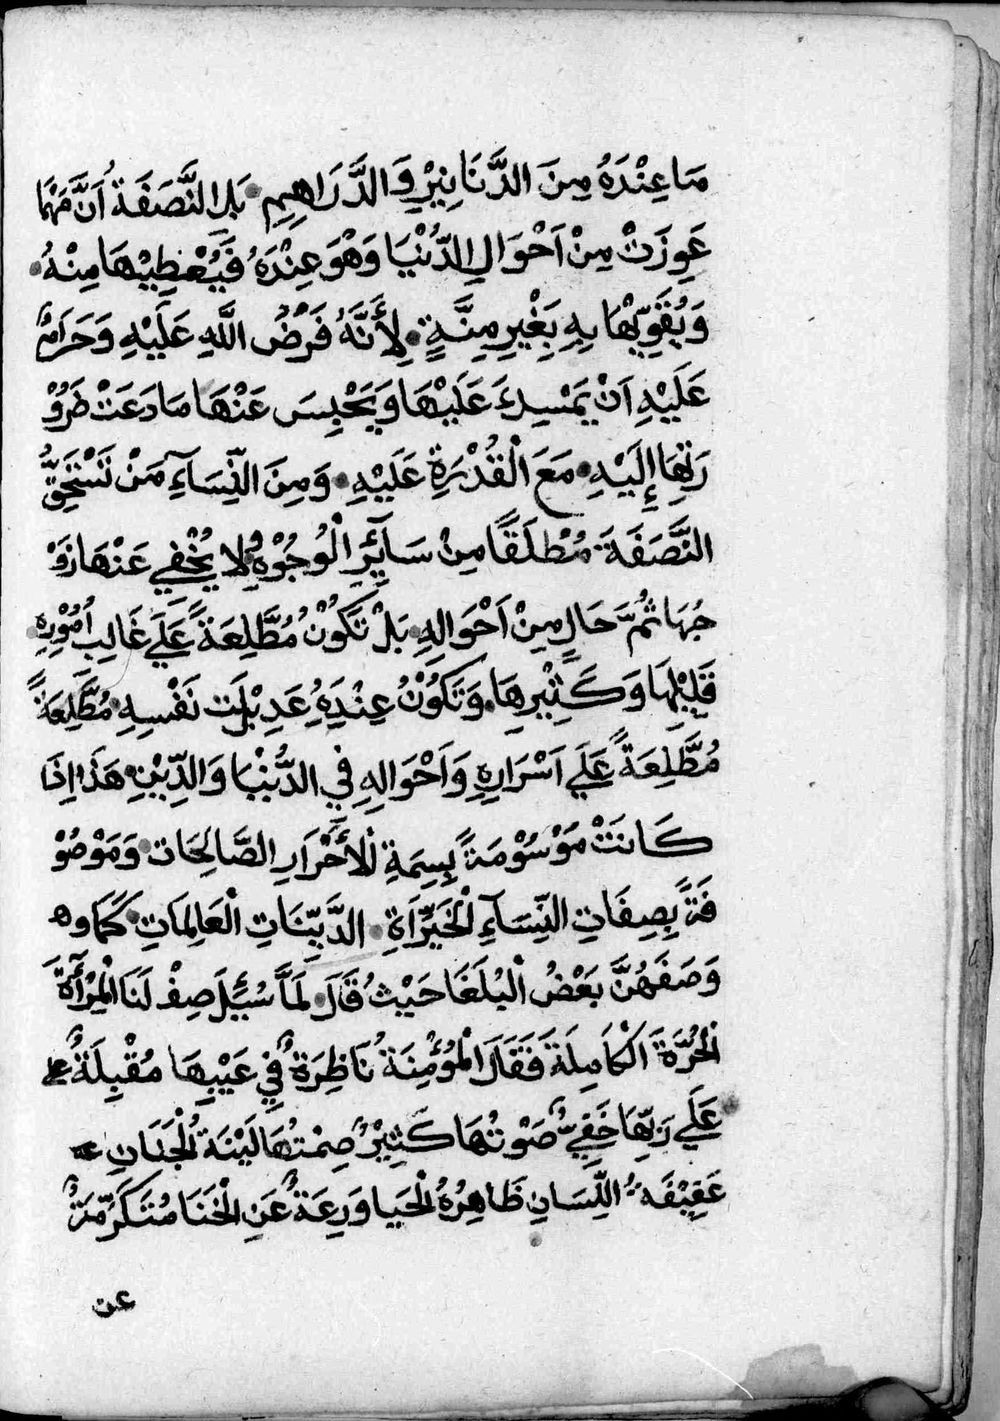 مَا عِنْدَهُ مِنَ الدَّنَانِيْرِ وَالدَّرَاهِمِ بَلِ النَّصَفَةُ اَنَّ مَهْمَا
عَوِزَتْ مِنْ اَحْوَالِ الدُّنْيَا وَهْوَ عِنْدَهُ فَيُعْطِيْهَا مِنْهُ
وَيُقَوِّيْهَا بِهِ بِغَيْرِ مِنَّةٍ لِأَنَّهُ فَرْضُ اللَّهِ عَلَيْهِ وَحَرَامٌ
عَلَيْهِ اَنْ يَمْسِكَ عَلَيْهَا وَيَحْبِسَ عَنْهَا مَا دَعَتْ ضَرُوْ
رَتُهَا إِلَيْهِ مَعَ الْقُدْرَةِ عَلَيْهِ وَمِنَ النِّسَآءِ مَنْ تَسْتَحِقُّ
النَّصَفَةَ مُطْلَقًا مِنْ سَآئِرِ الْوُجُوْهِ لَا يُخْفِي عَنْهَا زَوْ
جُهَا ثَمَّ حَالٍ مِنْ اَحْوَالِهِ بَلْ تَكُوْنُ مُطَّلِعَةً عَلَي غَالِبِ اُمُوْرِهِ
قَلِيْلِهَا وَكَثِيْرِهَا وَتَكُوْنُ عِنْدَهُ عَدِيْلَت نَفْسِهِ مُطَّلِعَةً
مُطَّلِعَةً عَلَي اَسْرَارِهِ وَاَحْوَالِهِ فِي الدُّنْيَا وَالدِّيْنِ هَذَا اِذَا
كَانَتْ مَوْسُوْمَةً بِسِمَةِ الْأَحْرَارِ الصَّالِحَاتِ وَمَوْصُوْ
فَةً بِصِفَاتِ النِّسَآءِ الْخَيِّرَاةِ الدَّيِّنَاتِ الْعَالِمَاتِ كَمَا وه
وَصَفَهُنَّ بَعْضُ الْبُلَغَا حَيْثُ قَالَ لَمَّا سُئِلَ صِفْ لَنَا الْمَرْأَةَ
الْحُرَّةَ الْكَامِلَةَ فَقَالَ الْمُؤْمِنَةُ نَاظِرَةٌ فِي عَيْبِهَا مُقْبِلَةٌ عل
عَلَي رَبِّهَا خَفِيٌّ صَوْتُهَا كَثِيْرٌ صِمْتُهَا لَيْنَةُ الْجَنَانِ عـ
عَفِيْفَةُ اللِّسَانِ ظَاهِرَةُ الْحَيَا وَرِعَةٌ عَنِ الْخَنَا مُتَكَرِّمَةٌ
عن